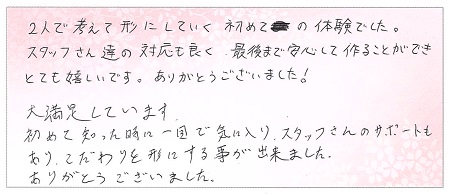 2人で考えて形にしていく初めての体験でした。
スタッフさん達の対応も良く、最後まで安心して作ることができ
とても嬉しいです。ありがとうございました!
大満足しています。
初めて知った時に一目で気に入り、スタッフさんのサポートも
あり、こだわりを形にする事が出来ました。
ありがとうございました。